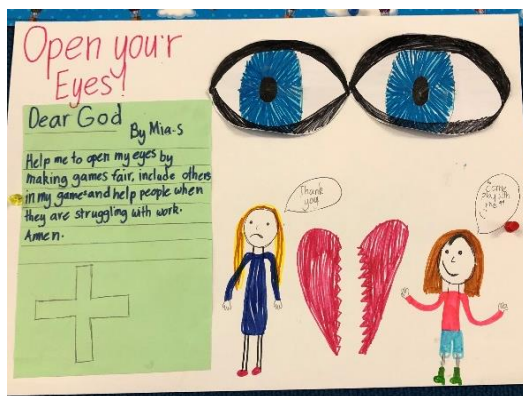 Open your
Eyes!
Dear God
By Mia.S
Help me to open my eyes by
making games fair, include others
in my games and help people when
they are struggling with work.
Amen.
Thank
you
Come
play with
me